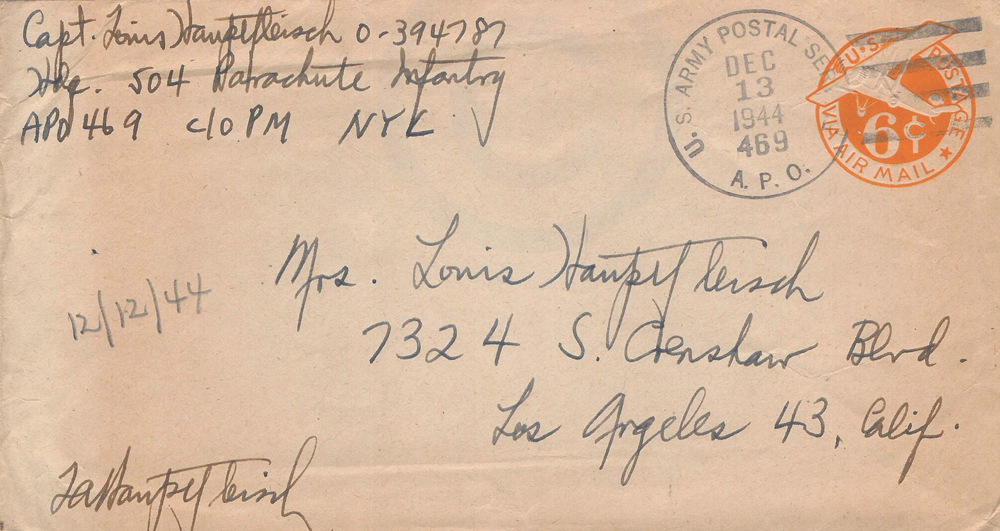 Capt. Louis Hauptfleisch O-394787
Hdq. 504 Parachute Infantry
APO 469 c/o PM NYC
U.S. ARMY POSTAL SE
DEC
13
1944
469
A.P.O.
U.S. POSTAGE
6¢
VIA AIR MAIL
Mrs. Louis Hauptfleisch
7324 S. Crenshaw Blvd.
Los Angeles 43, Calif.
12/12/44
LAHauptfleisch